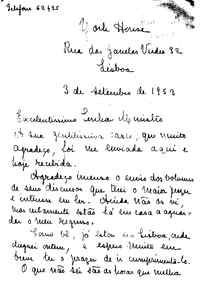 Telefone 62435
York House
Rua das Janelas Verdes 32
Lisboa
3 de setembro de 1953
Excelentíssimo Senhor Ministro
A sua gentilíssima carta, que muito
agradeço, foi me enviada aqui e
hoje recebida.
Agradeço imenso o envio dos volumes
de seus discursos que terei o maior prazer
e interesse em ler. Ainda não os vi,
mas certamente estão lá em casa a aguardar
o meu regresso.
Como vê, já estou em Lisboa, onde
cheguei ontem, e espero muito em
breve ter o prazer de ir cumprimentá-lo.
O que não sei são as horas que melhor